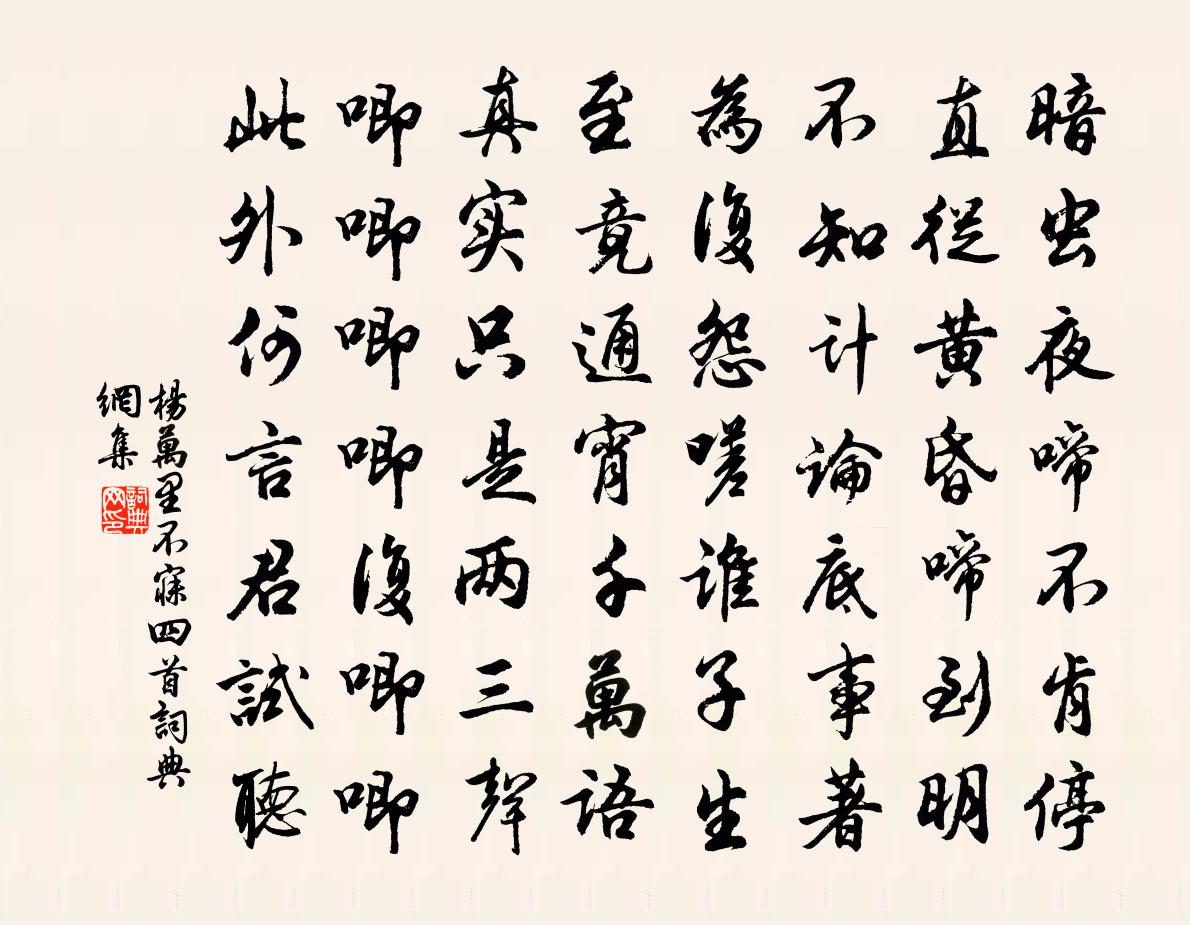 暗虫夜啼不肯停
直從黄昏啼到明
不知计論底事著
為復怨嗟誰子生
至竟通宵千萬语
真实只是两三聲
唧唧唧唧復唧唧
此外何言君試聽
楊萬里不寐四首詞典
網集
詞典网印